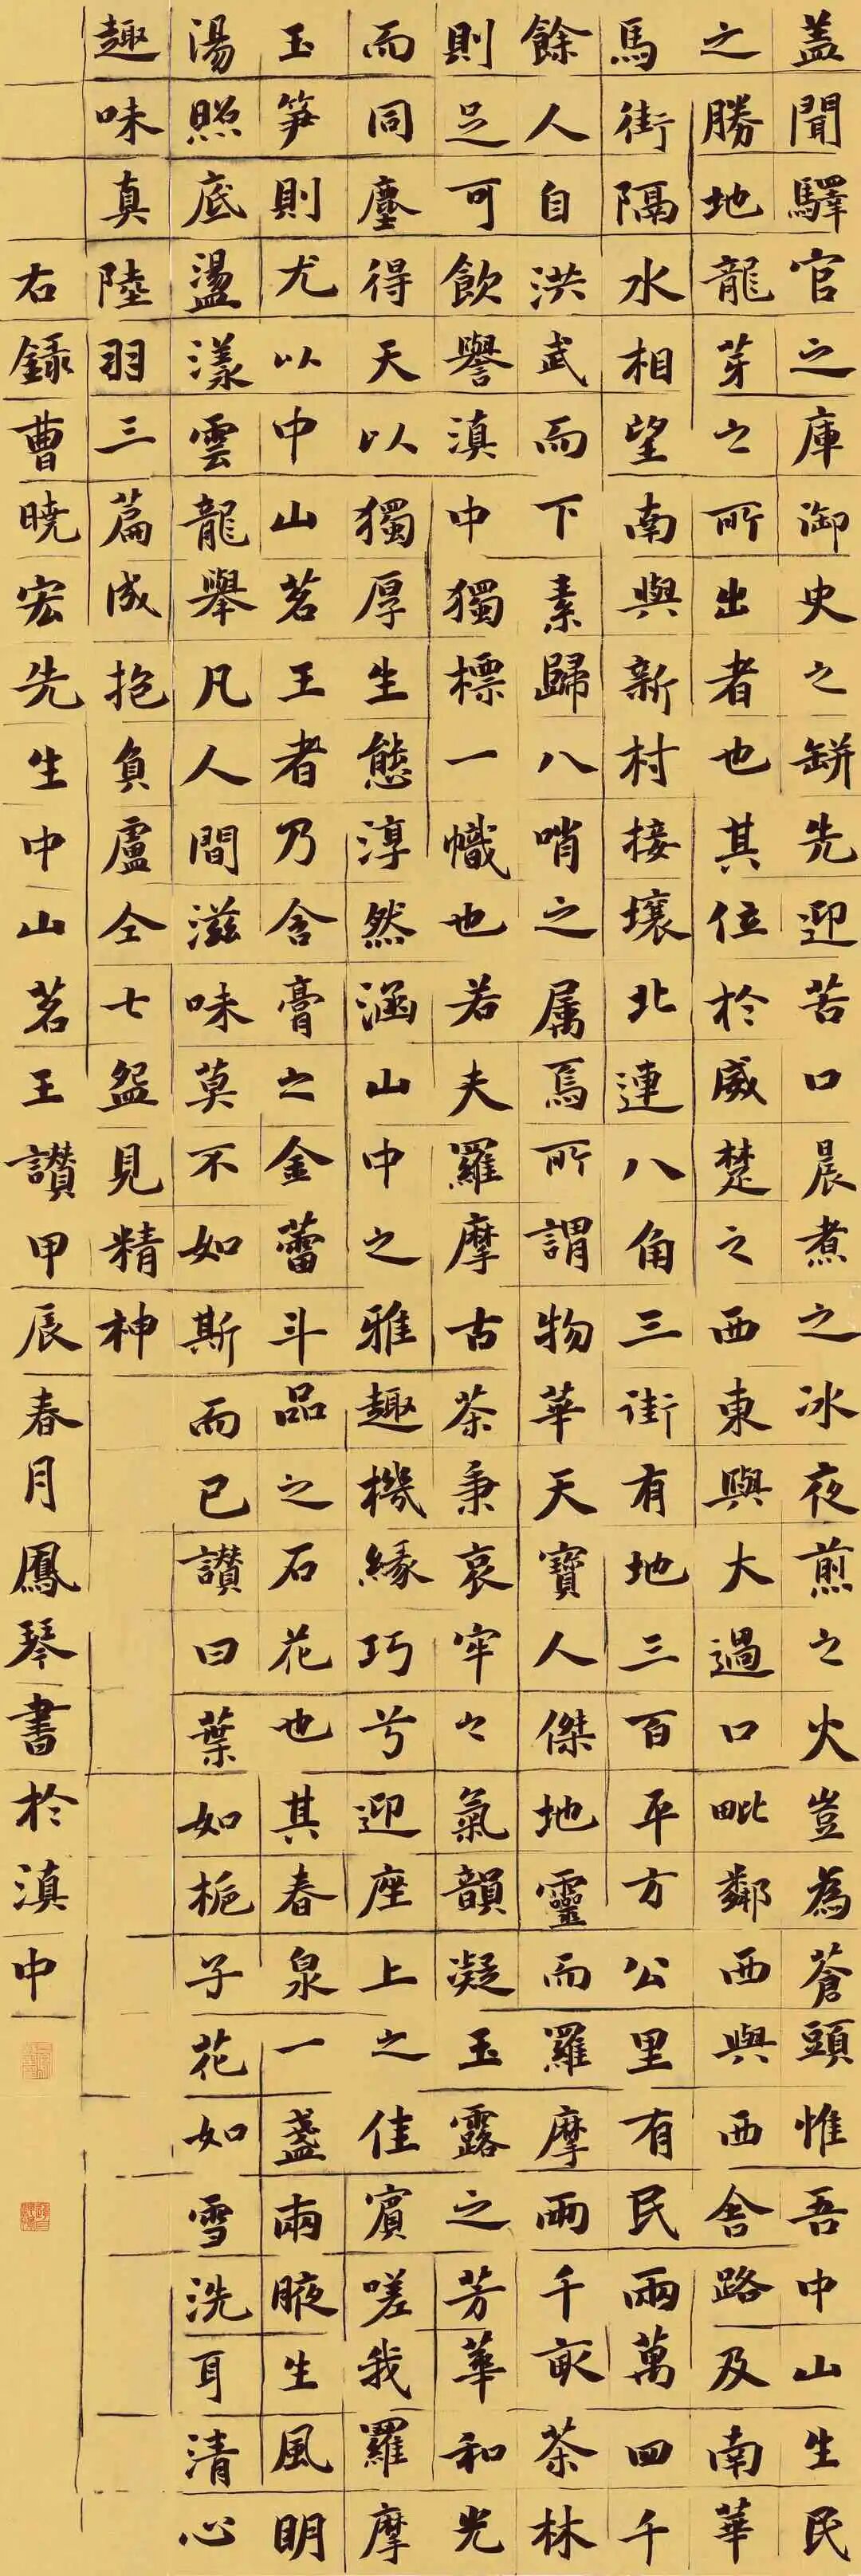 蓋聞驛官之庫御史之缾先迎苦口晨煮之冰夜煎之火豈為蒼頭惟吾中山生民
之勝地龍芽之所出者也其位於威楚之西東與大過口毗鄰西與西舍路及南華
馬街隔水相望南與新村接壤北連八角三街有地三百平方公里有民兩萬四千
餘人自洪武而下素歸八哨之属焉所謂物華天寶人傑地靈而羅摩兩千畝茶林
則足可飲譽滇中獨標一幟也若夫羅摩古茶秉哀牢之氣韻凝玉露之芳華和光
而同塵得天以獨厚生態淳然涵山中之雅趣機緣巧兮迎座上之佳賓嗟我羅摩
玉笋則尤以中山茗王者乃含膏之金蕾斗品之石花也其春泉一盞兩腋生風明
湯照底盪漾雲龍舉凡人間滋味莫不如斯而已讃曰葉如栀子花如雪洗耳清心
趣味真陸羽三篇成抱負盧仝七盌見精神
右錄曹曉宏先生中山茗王讃甲辰春月鳳琴書於滇中